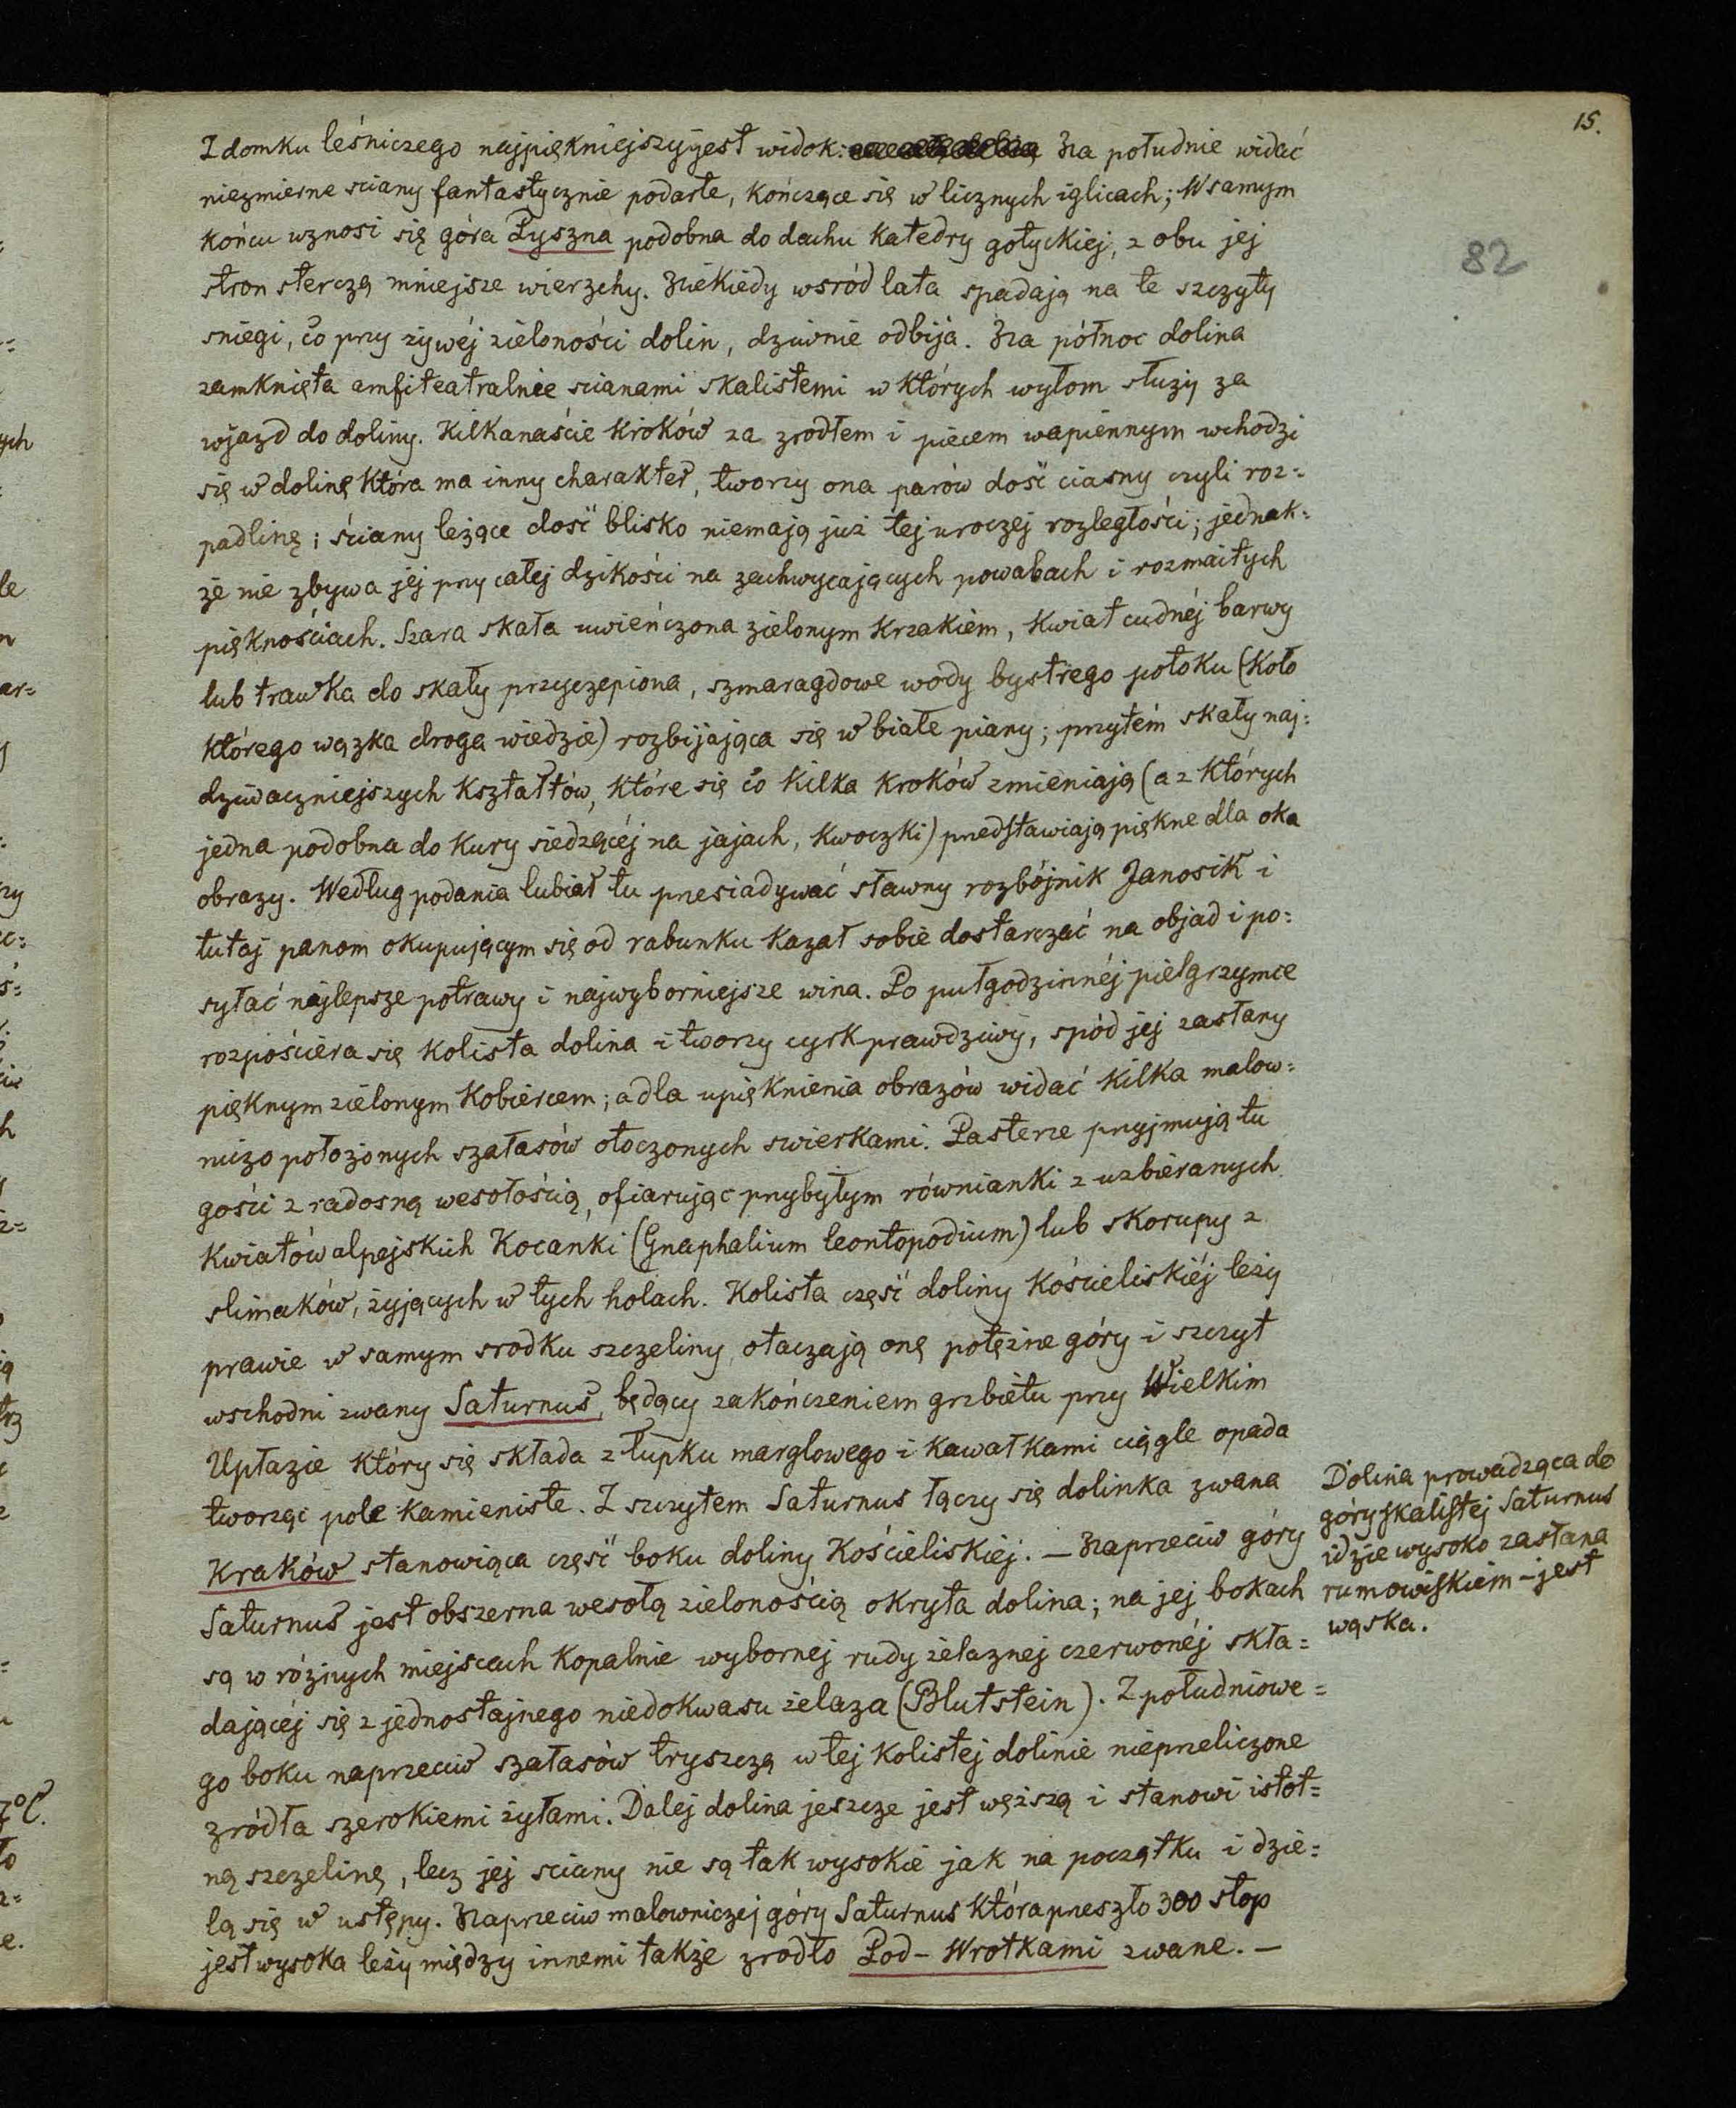 15.
82
Z domku leśniczego najpiękniejszy jest widok: Na południe widać
niezmierne sciany fantastycznie podarte, kończące się w licznych iglicach; W samym
końcu wznosi się góra Pyszna podobna do dachu Katedry gotyckiej, z obu jej
stron sterczą mniejsze wierzchy. Niekiedy wsród lata spadają na te szczyty
sniegi, co przy żywéj zieloności dolin, dziwnie odbija. Na północ dolina
zamknięta amfiteatralnie scianami skalistemi w których wyłom służy za
wjazd do doliny. Kilkanaście kroków za zrodłem i piecem wapiennym wchodzi
się w dolinę która ma inny charakter, tworzy ona parów dość ciasny czyli roz=
padlinę; ściany leżące dość blisko niemają już tej uroczej rozległości; jednak=
że nie zbywa jej przy całej dzikości na zachwycających powabach i rozmaitych
pięknościach. Szara skała uwieńczona zielonym krzakiem, kwiat cudnéj barwy
lub trawka do skały przyczepiona, szmaragdowe wody bystrego potoku (koło
którego wązka droga wiedzie) rozbijająca się w białe piany; przytém skały naj=
dziwaczniejszych kształtów, które się co kilka kroków zmieniają (a z których
jedna podobna do kury siedzącéj na jajach, kwoczki) predstawiają piękne dla oka
obrazy. Według podania lubiał tu presiadywać sławny rozbójnik Janosik i
tutaj panom okupującym się od rabunku kazał sobie dostarczać na objad i po=
syłać najlepsze potrawy i najwyborniejsze wina. Po pułgodzinnéj pielgrzymce
rozpościera się kolista dolina i tworzy cyrk prawdziwy, spód jej zasłany
pięknym zielonym kobiercem; a dla upięknienia obrazów widać kilka malow=
niczo położonych szałasów otoczonych swierkami. Pasterze pryjmują tu
gości z radosną wesołością, ofiarując prybyłym równianki z uzbieranych
kwiatów alpejskich Kocanki (Gnaphalium leontopodium) lub skorupy z
slimaków, żyjących w tych holach. Kolista część doliny Kościeliskiéj leży
prawie w samym srodku szczeliny, otaczają onę potężne góry i szczyt
wschodni zwany Saturnus, będący zakończeniem grzbietu przy Wielkim
Upłazie który się składa z łupku marglowego i kawałkami ciągle opada
tworząc pole kamieniste. Z szczytem Saturnus łączy się dolinka zwana
Kraków stanowiąca część boku doliny Kościeliskiej. — Naprzeciw góry
Saturnus jest obszerna wesołą zielonością okryta dolina; na jej bokach
są w różnych miejscach kopalnie wybornej rudy żelaznej czerwonéj skła=
dającéj się z jednostajnego niedokwasu żelaza (Blutstein). Z południowe=
go boku naprzeciw szałasów tryszczą w tej kolistej dolinie niepreliczone
zródła szerokiemi żyłami. Dalej dolina jeszcze jest węższą i stanowi istot=
ną szczelinę, lecz jej sciany nie są tak wysokie jak na początku i dzie=
lą się w ustępy. Naprzeciw malowniczej góry Saturnus która preszło 300 stop
jest wysoka leży między innemi także zrodło Pod-Wrotkami zwane. —
Dolina prowadząca do
góry skalistej Saturnus
idzie wysoko zasłana
rumowiskiem – jest
wąska.